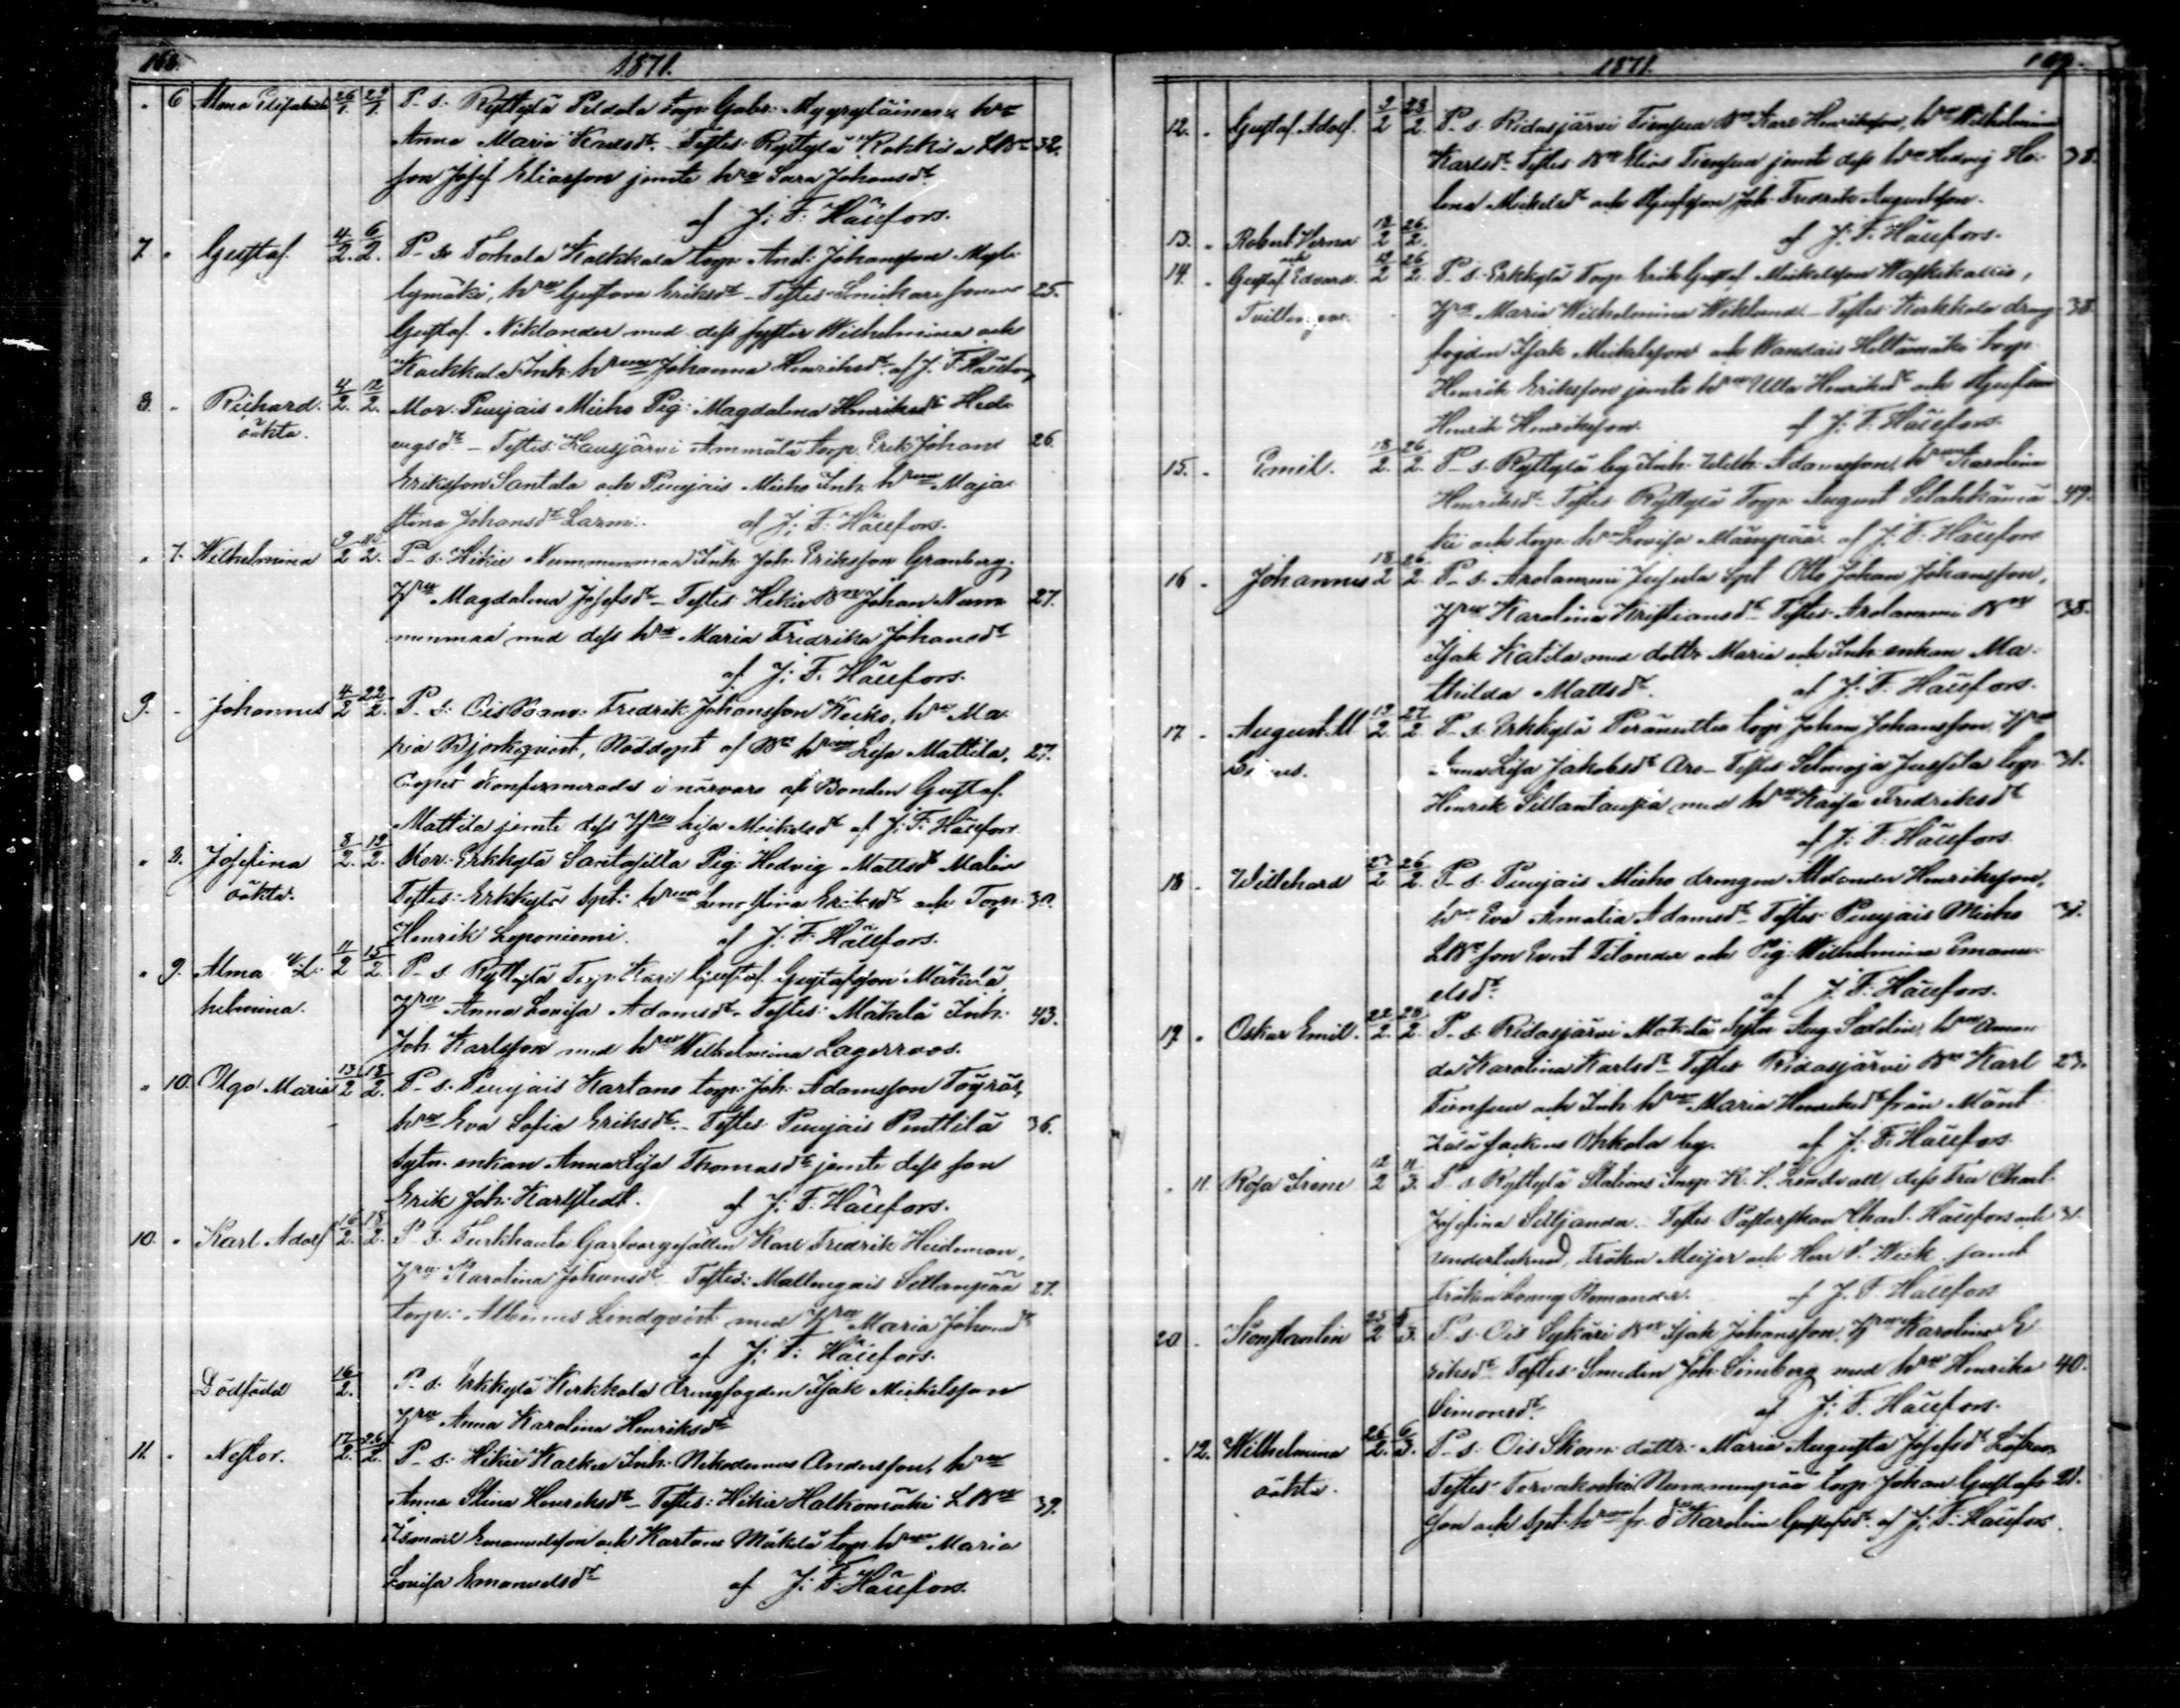 168. 1871.
" 6 Alma Elisabeth 26/1 29/1 P-s: Ryttylä Peldola torp: Gabr: Myyryläinen h:u
Anna Maria Karlsdr. Testes: Ryttylä Kokkila LB:e 32.
son Josef Eliasson jemte h:u Sara Johansdr.
af J: F: Hällfors.
7. " Gustaf. 4/2. 6/2. P-s: Torhola torp: And: Johansson
lymäki, h:u Gustava Eriksdr - Testes: Snickare sonen 25.
Gustaf Niklander med dess syster Wilhelmina och
Inh. h:u Johanna Henriksdr. af J. F. Hällfors
8. " Richard. 4/2. 12/2. Mor: Puujais Mieho Pig: Magdalena Henriksdr Hed-
oäkta.
vigsdr. - Testes: Hausjärvi Ammälä torp. Erik Johan 26.
Eriksson Santala och Puujais Mieho Inh. h:u Maja
stina Johansdr Larmi. af J: F: Hällfors.
" 7. Wilhelmina 9/2 2. P-s: Hikiä Nummenmaa Inh. Joh: Eriksson Granberg,
H:u Magdalena Josefsdr - Testes: Hikiä B:n Johan Num- 27.
menmaa med dess h:u Maria Fredrika Johansdr
af J: F. Hällfors.
9. - Johannes 4/2 22/2. P-s: Ois Fredrik Johansson h:u Ma-
ria Björkqvist, Nöddöpt af h:u Lisa Mattila, 27.
Dopet Konfirmerades i närvaro af Bonden Gustaf
Mattila jemte dess H:u Lisa Mickelsdr af J: F: Hällfors
" 8. Josefina 8/2. 19/2. Mor: Erkkylä Santasilta Pig: Hedvig Mattsdr Malin
oäkta.
Testes: Erkkylä Spt: h:u stina Eriksdr och Torp. 30.
Henrik Leponiemi. af J: F: Hällfors.
" 9. Alma Wil- 11/2 15/2. P-s. Ryttylä Torp: Karl Gustaf Gustafsson Mäkelä,
helmina. H:u Anna Lovisa Adamsdr. Testes: Mäkelä Inh. 43.
Joh. Karlsson med h:u Wilhelmina Lagerroos.
" 10. Olga Maria 13/2 18/2. P-s. Puujais Kartano torp: Joh. Adamsson Töyräs,
h:u Eva Sofia Eriksdr. - Testes: Puujais Penttilä 36.
Sytn. enkan Anna Lisa Thomasdr jemte dess son
Erik Joh: Karlstedt. af J: F: Hällfors.
10. " Karl Adolf 16/2. 18/2. P-s. Turkhauta Garfvargesällen Karl Fredrik Heideman,
H:u Karolina Johansdr. Testes: Mallinkais Sillanpää 27.
torp: Albinus Lindqvist med H:u Maria Johansdr
af J: F: Hällfors.
Dödfödd 16/2. P-s. Erkkylä Kerkkola drengfogden Isak Mickelsson
H:u Anna Karolina Henriksdr
11. " Nestor. 17/2. 26/2. P-s: Hikiä Inh. Nikodemus Andersson, h:u
Anna Stina Henriksdr - Testes: Hikiä Halkomäki LB:n 39.
Ismael Emanuelsson och Kartano Mäkelä torp. h:u Maria
Lovisa Emanuelsdr af J: F: Hällfors.
1871. 169.
12. " Gustaf Adolf. 9/2 28/2. P-s. Ridasjärvi Tiensuu B:n Karl Henriksson, h:u Wilhelmina
Karlsdr. Testes B:n Elias Tiensuu jemte dess h:u Hedvig He- 38.
lena Mickelsdr och Styfsson Joh. Fredrik Augustsson.
13. " Robert Verner 12/2 26/2. af J: F. Hällfors.
och
14. " Gustaf Edvard. 12/2 26/2. P-s. Erkkylä Torp: Erik Gustaf Mickelsson Waskikallio,
Tvillingar. H:u Maria Wilhelmina Wiklund. - Testes Kerkkola dreng- 38.
fogden Isak Mickelsson och Wantais Hiltamäki torp.
Henrik Eriksson jemte h:u Ulla Henriksdr och Styfson
Henrik Henriksson. af J: F: Hällfors.
15. " Emil. 18/2. 26/2. P-s. Ryttylä by Inh. Wilh: Adamsson, h:u Karolina
Henriksdr. Testes Ryttylä Torp: August 49.
ki och torp h:u Lovisa Mäenpää. af J: F: Hällfors
16 " Johannes 18/2 26/2. P-s. Arolammi Jussila Spl Otto Johan Johansson,
H:u Karolina Kristiansdr - Testes: Arolammi B:n 38.
Isak Katila med dottr Maria och Inh. enkan Ma-
thilda Mattsdr. af J: F. Hällfors.
17. " August 19/2. 27/2. P-s. Erkkylä torp Johan Johansson, H:u
Anna Lisa Jakobsdr Aro - Testes Selinoja Jussila torp. 31.
Henrik Sillantaupa med h:u Kaisa Fredriksdr
af J: F: Hällfors.
18. " Willehard 23/2. 26/2. P-s: Puujais Mieho drengen Alexander Henriksson,
h:u Eva Amalia Adamsdr. Testes: Puujais Mieho 31.
LB:n son Evert Tilander och Pig: Wilhelmina Emanu-
elsdr. af J: F: Hällfors.
19. " Oskar Emil. 22/2. 28/2. P-s. Ridasjärvi Mäkelä Sytn Aug: Sadelin, h:u Aman-
da Karolina Karlsdr - Testes: Ridasjärvi B:n Karl 23.
Tiensuu och Inh. h:u Maria Henriksdr från Mänt-
sälä sockens Ohkola by. af J: F. Hällfors.
" 11. Rosa Irene 12/2 11/3. P-s. Ryttylä Stations Insp: K. V. Lindvall, dess Fru Charl.
Josefina Siltjander. - Testes: Pastorskan Charl. Hällfors och 31.
undertecknad, Fröken Meijer och Herr V. Weck samt
Fröken Fanny Romander. af J. F. Hällfors
20. " Konstantin 25/2 5/3. P-s: Ois Sykäri B:n Isak Johansson, H:u Karolina E-
riksdr. Testes: Smeden Joh: Simberg med h:u Henrika 40.
Simonsdr. af J: F. Hällfors.
" 12. Wilhelmina 26/2. 6/3. P-s. Ois Skom: dottr: Maria Augusta Josefsdr Löfroos
oäkta. Testes: Torvakoski Nummenpää torp. Johan Gustafs- 21.
son och Spt. h:u fr. d:o Karolina Gustafsdr. af J: F: Hällfors.